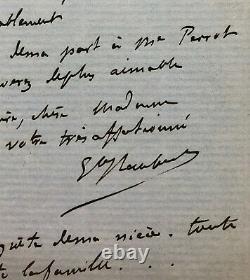 de ma part à Mme Perrot
de plus aimable
chère Madame
votre très affectionné
Gve Flaubert
de ma nièce. toute
la famille. . .